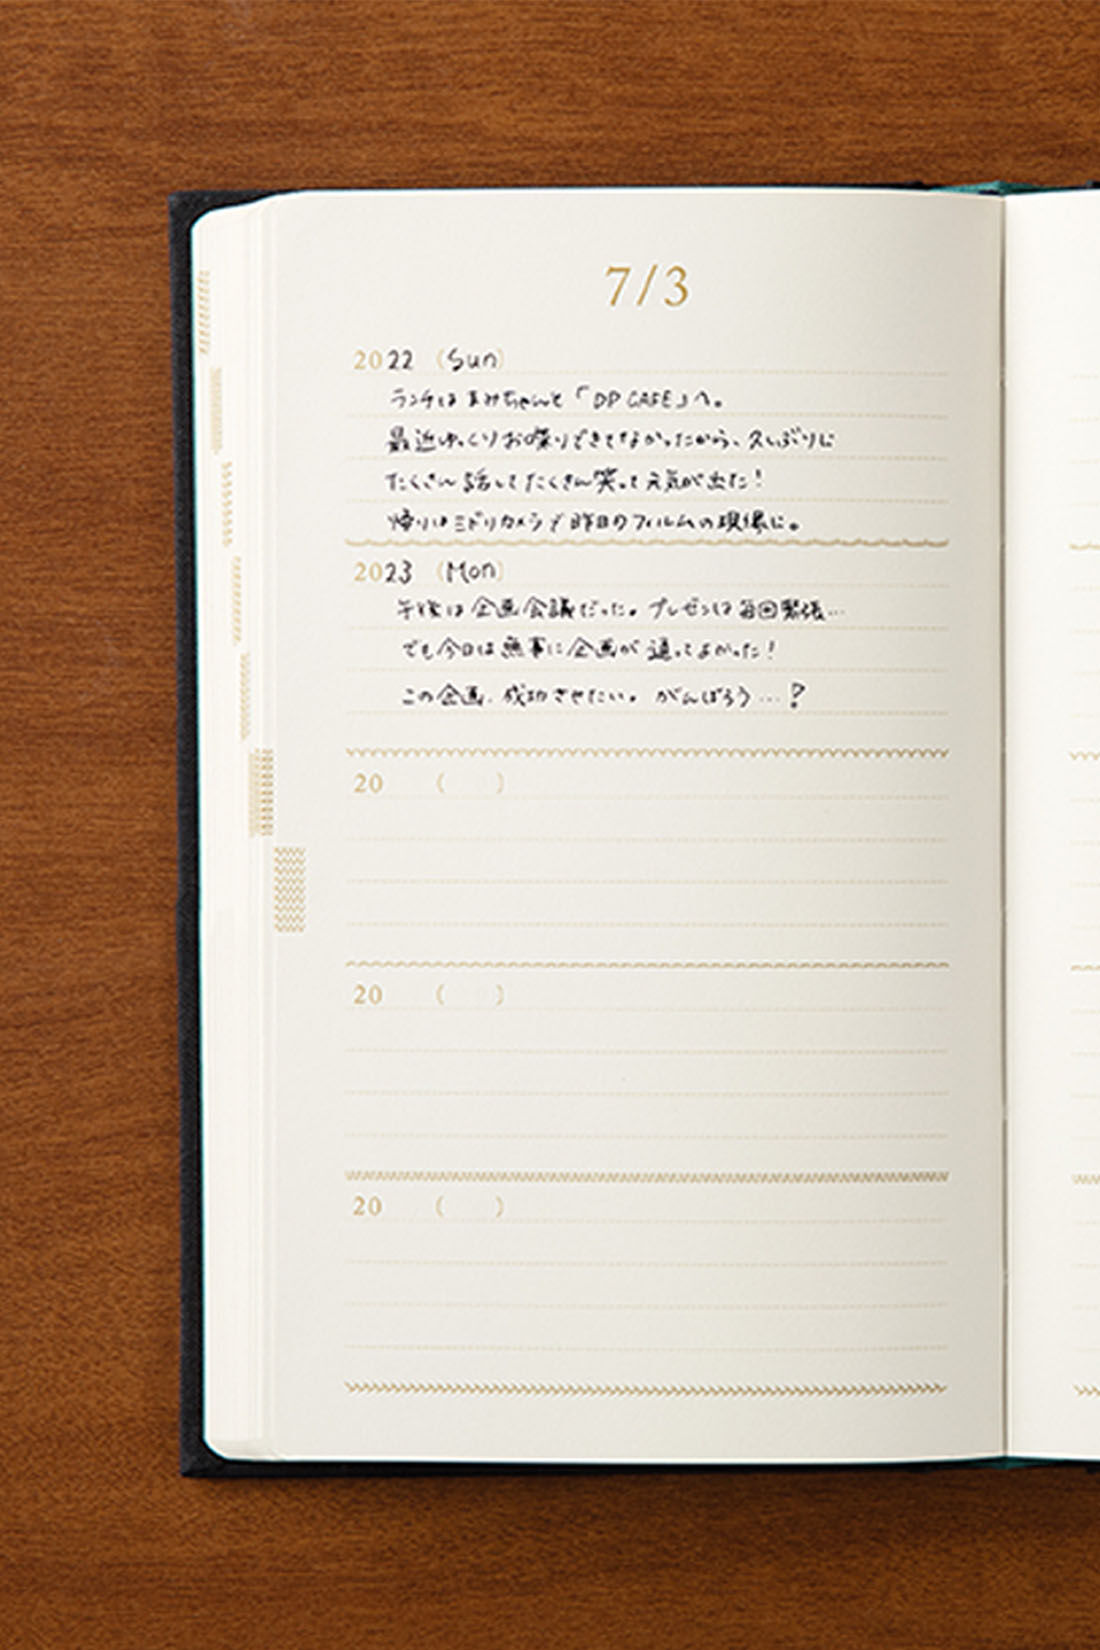 7/3
2022 (Sun)
ランチはまみちゃんと「DP CAFE」へ。
最近ゆっくりお喋りできてなかったから、久しぶりに
たくさん話してたくさん笑って元気が出た!
帰りはミドリカメラで昨日のフィルムの現像に。
2023 (Mon)
午後は企画会議だった。プレゼンは毎回緊張…
でも今日は無事に企画が通ってよかった!
この企画、成功させたい。がんばろう…!
20 ( )
20 ( )
20 ( )